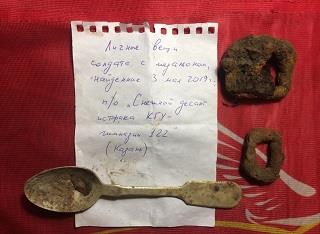 Личные вещи
солдата с медальоном,
найденные 3 мая 2019 г.
п/о "Снежный десант
истфака КГУ -
гимназии 122
(Казань)